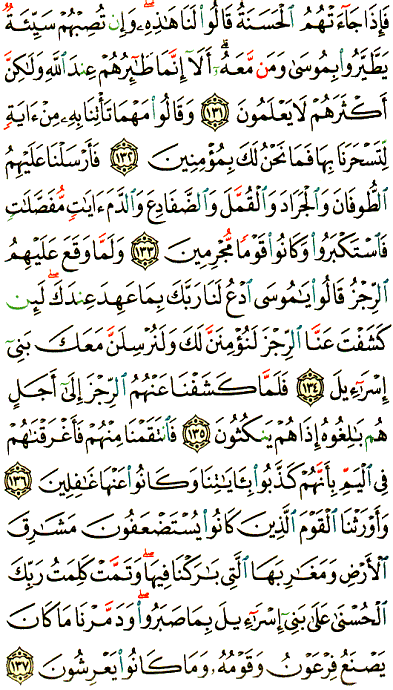 فَإِذَا جَآءَتْهُمُ ٱلْحَسَنَةُ قَالُوا۟ لَنَا هَـٰذِهِۦ ۖ وَإِن تُصِبْهُمْ سَيِّئَةٌ
يَطَّيَّرُوا۟ بِمُوسَىٰ وَمَن مَّعَهُۥٓ ۗ أَلَآ إِنَّمَا طَـٰٓئِرُهُمْ عِندَ ٱللَّهِ وَلَـٰكِنَّ
أَكْثَرَهُمْ لَا يَعْلَمُونَ ١٣١ وَقَالُوا۟ مَهْمَا تَأْتِنَا بِهِۦ مِنْ ءَايَةٍ
لِّتَسْحَرَنَا بِهَا فَمَا نَحْنُ لَكَ بِمُؤْمِنِينَ ١٣٢ فَأَرْسَلْنَا عَلَيْهِمُ
ٱلطُّوفَانَ وَٱلْجَرَادَ وَٱلْقُمَّلَ وَٱلضَّفَادِعَ وَٱلدَّمَ ءَايَـٰتٍ مُّفَصَّلَـٰتٍ
فَٱسْتَكْبَرُوا۟ وَكَانُوا۟ قَوْمًا مُّجْرِمِينَ ١٣٣ وَلَمَّا وَقَعَ عَلَيْهِمُ
ٱلرِّجْزُ قَالُوا۟ يَـٰمُوسَى ٱدْعُ لَنَا رَبَّكَ بِمَا عَهِدَ عِندَكَ ۖ لَئِن
كَشَفْتَ عَنَّا ٱلرِّجْزَ لَنُؤْمِنَنَّ لَكَ وَلَنُرْسِلَنَّ مَعَكَ بَنِىٓ
إِسْرَٰٓءِيلَ ١٣٤ فَلَمَّا كَشَفْنَا عَنْهُمُ ٱلرِّجْزَ إِلَىٰٓ أَجَلٍ
هُم بَـٰلِغُوهُ إِذَا هُمْ يَنكُثُونَ ١٣٥ فَٱنتَقَمْنَا مِنْهُمْ فَأَغْرَقْنَـٰهُمْ
فِى ٱلْيَمِّ بِأَنَّهُمْ كَذَّبُوا۟ بِـَٔايَـٰتِنَا وَكَانُوا۟ عَنْهَا غَـٰفِلِينَ ١٣٦
وَأَوْرَثْنَا ٱلْقَوْمَ ٱلَّذِينَ كَانُوا۟ يُسْتَضْعَفُونَ مَشَـٰرِقَ
ٱلْأَرْضِ وَمَغَـٰرِبَهَا ٱلَّتِى بَـٰرَكْنَا فِيهَا ۖ وَتَمَّتْ كَلِمَتُ رَبِّكَ
ٱلْحُسْنَىٰ عَلَىٰ بَنِىٓ إِسْرَٰٓءِيلَ بِمَا صَبَرُوا۟ ۖ وَدَمَّرْنَا مَا كَانَ
يَصْنَعُ فِرْعَوْنُ وَقَوْمُهُۥ وَمَا كَانُوا۟ يَعْرِشُونَ ١٣٧